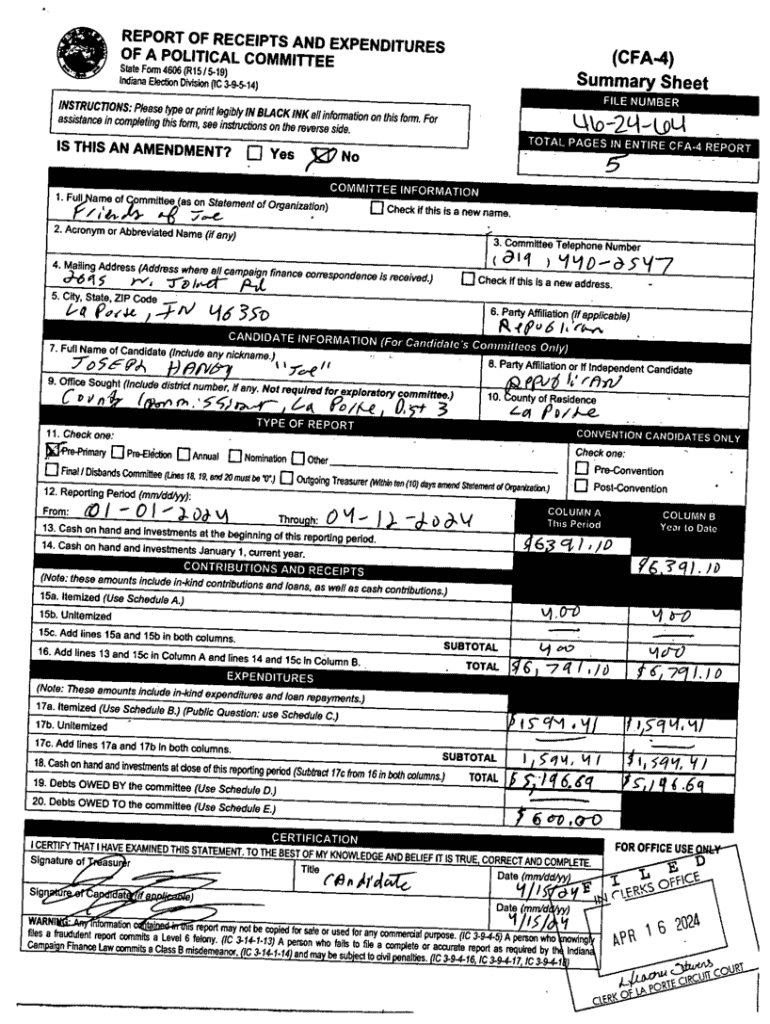 REPORT OF RECEIPTS AND EXPENDITURES
OF A POLITICAL COMMITTEE
State Form 4606 (R15 / 5-19)
Indiana Election Division (IC 3-9-5-14)
(CFA-4)
Summary Sheet
INSTRUCTIONS: Please type or print legibly IN BLACK INK all information on this form. For
assistance in completing this form, see instructions on the reverse side.
FILE NUMBER
46-24-64
TOTAL PAGES IN ENTIRE CFA-4 REPORT
5
IS THIS AN AMENDMENT? Yes No
COMMITTEE INFORMATION
1. Full Name of Committee (as on Statement of Organization) Check if this is a new name.
Friends of Joe
2. Acronym or Abbreviated Name (if any)
3. Committee Telephone Number
(219) 440-2547
4. Mailing Address (Address where all campaign finance correspondence is received.) Check if this is a new address.
2695 W. Joliet Rd
5. City, State, ZIP Code
La Porte, IN 46350
6. Party Affiliation (if applicable)
Republican
CANDIDATE INFORMATION (For Candidate's Committees Only)
7. Full Name of Candidate (Include any nickname.)
JOSEPH HANEY "Joe"
8. Party Affiliation or If Independent Candidate
REPUBLICAN
9. Office Sought (Include district number, if any. Not required for exploratory committee.)
County Commissioner, La Porte, Dist 3
10. County of Residence
La Porte
TYPE OF REPORT
CONVENTION CANDIDATES ONLY
11. Check one:
Pre-Primary Pre-Election Annual Nomination Other
Final / Disbands Committee (Lines 18, 19, and 20 must be "0".) Outgoing Treasurer (Within ten (10) days amend Statement of Organization.)
Check one:
Pre-Convention
Post-Convention
12. Reporting Period (mm/dd/yy):
From: 01-01-2024 Through: 04-12-2024
COLUMN A
This Period
COLUMN B
Year to Date
13. Cash on hand and investments at the beginning of this reporting period. $6391.10
14. Cash on hand and investments January 1, current year. $6,391.10
CONTRIBUTIONS AND RECEIPTS
(Note: these amounts include in-kind contributions and loans, as well as cash contributions.)
15a. Itemized (Use Schedule A.) 4.00 400
15b. Unitemized — —
15c. Add lines 15a and 15b in both columns. SUBTOTAL 400 400
16. Add lines 13 and 15c in Column A and lines 14 and 15c in Column B. TOTAL $6,791.10 $6,791.10
EXPENDITURES
(Note: These amounts include in-kind expenditures and loan repayments.)
17a. Itemized (Use Schedule B.) (Public Question: use Schedule C.) $1594.41 $1,594.41
17b. Unitemized — —
17c. Add lines 17a and 17b in both columns. SUBTOTAL 1,594.41 $1,594.41
18. Cash on hand and investments at close of this reporting period (Subtract 17c from 16 in both columns.) TOTAL $5,196.69 $5,196.69
19. Debts OWED BY the committee (Use Schedule D.) —
20. Debts OWED TO the committee (Use Schedule E.) $600.00
CERTIFICATION
I CERTIFY THAT I HAVE EXAMINED THIS STATEMENT. TO THE BEST OF MY KNOWLEDGE AND BELIEF IT IS TRUE, CORRECT AND COMPLETE.
FOR OFFICE USE ONLY
Signature of Treasurer
Title
Candidate
Date (mm/dd/yy)
4/15/24
Signature of Candidate (if applicable)
Date (mm/dd/yy)
4/15/24
WARNING: Any information contained in this report may not be copied for sale or used for any commercial purpose. (IC 3-9-4-5) A person who knowingly
files a fraudulent report commits a Level 6 felony. (IC 3-14-1-13) A person who fails to file a complete or accurate report as required by the Indiana
Campaign Finance Law commits a Class B misdemeanor, (IC 3-14-1-14) and may be subject to civil penalties. (IC 3-9-4-16, IC 3-9-4-17, IC 3-9-4-18)
FILED
IN CLERKS OFFICE
APR 16 2024
Heather Stevens
CLERK OF LA PORTE CIRCUIT COURT